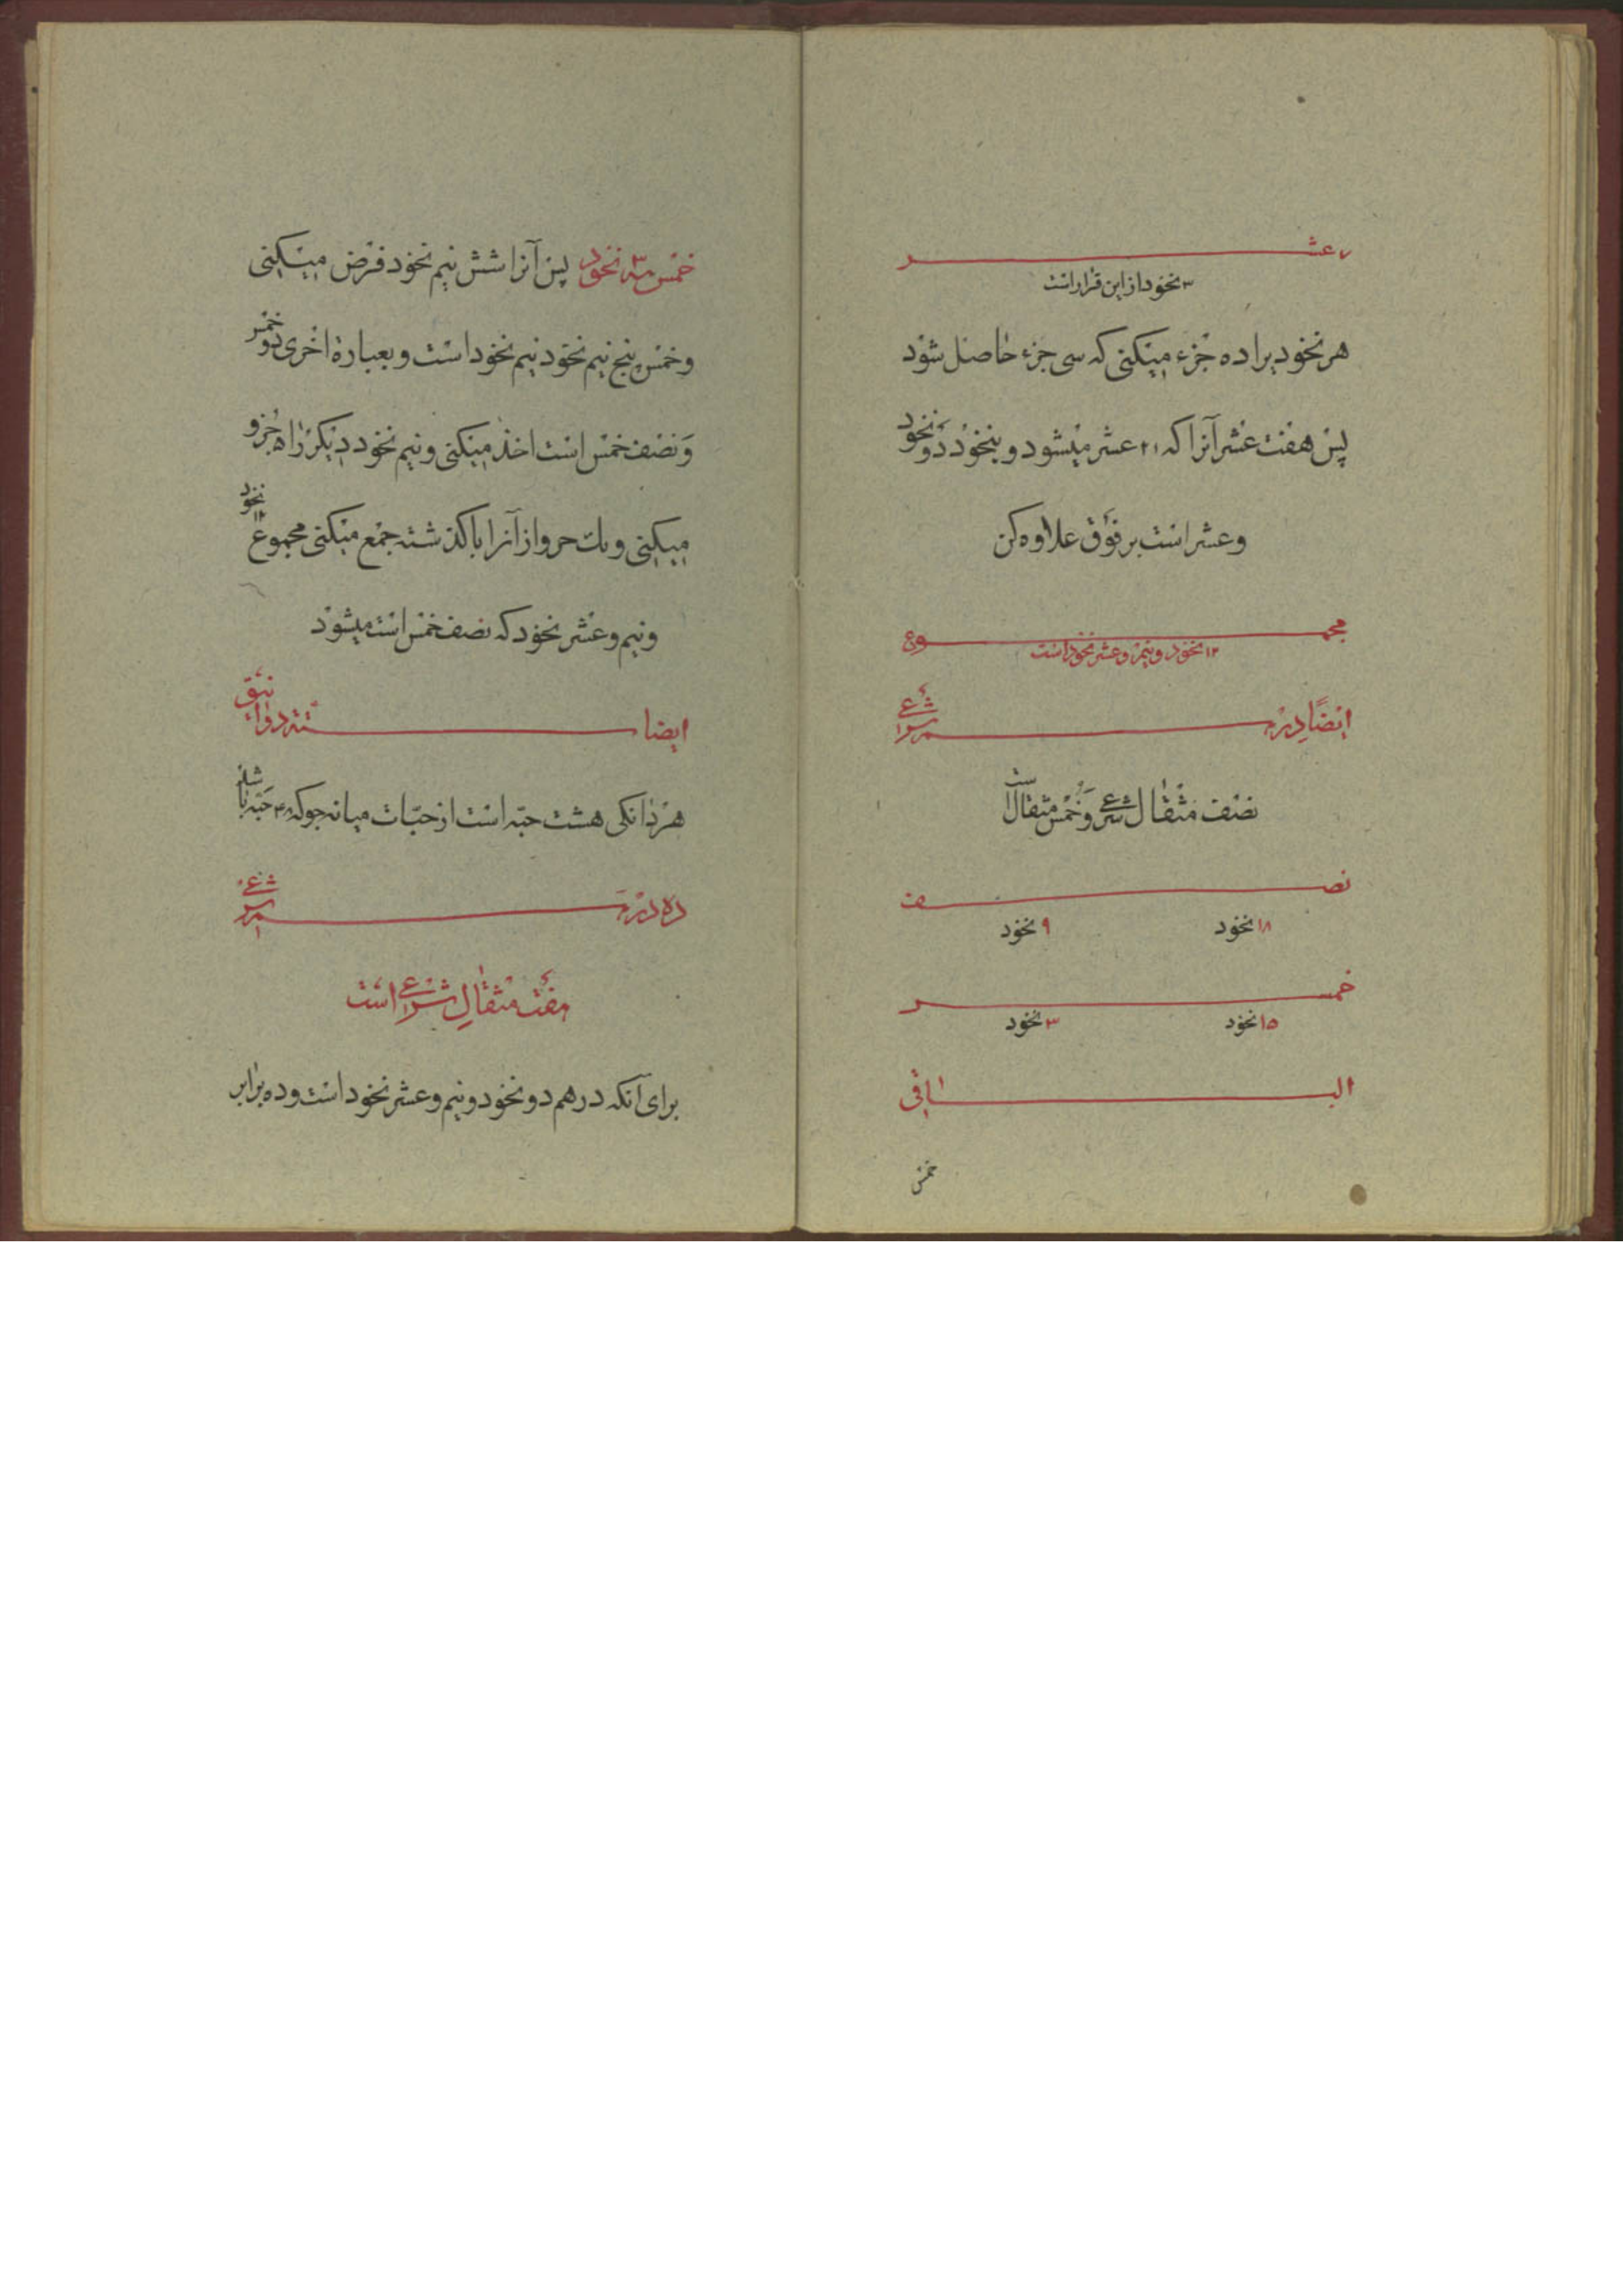 ۷ عشر
۳ نخود از این قرار است
هر نخود یرا ده جزء میکنی که سی جزء حاصل شود
پس هفت عشر آنرا که ۲۱ عشر میشود و بنخود دو نخود
و عشر است بر فوق علاوه کن
مجموع
۱۲ نخود و نیم و عشر نخود است
ایضاً درهم شرعی
نصف مثقال شرعی و خمس مثقال است
نصف
۱۸ نخود ۹ نخود
خمس
۱۵ نخود ۳ نخود
الباقی
خمس
خمس ۳ نخود پس آنرا شش نیم نخود فرض میکنی
و خمس پنج نیم نخود نیم نخود است و بعبارة اخری دو خمس
و نصف خمس است اخذ میکنی و نیم نخود دیگر را ۵ جزو
میکنی و یک جزو از آنرا با گذشته جمع میکنی مجموع ۱۲ نخود
و نیم و عشر نخود که نصف خمس است میشود
ایضا ستة دوانیق
هر دانکی هشت حبه است از حبّات میانه جو که ۴۸ حبه باشد
ده درهم شرعی
هفت مثقال شرعی است
برای آنکه درهم دو نخود و نیم و عشر نخود است و ده برابر